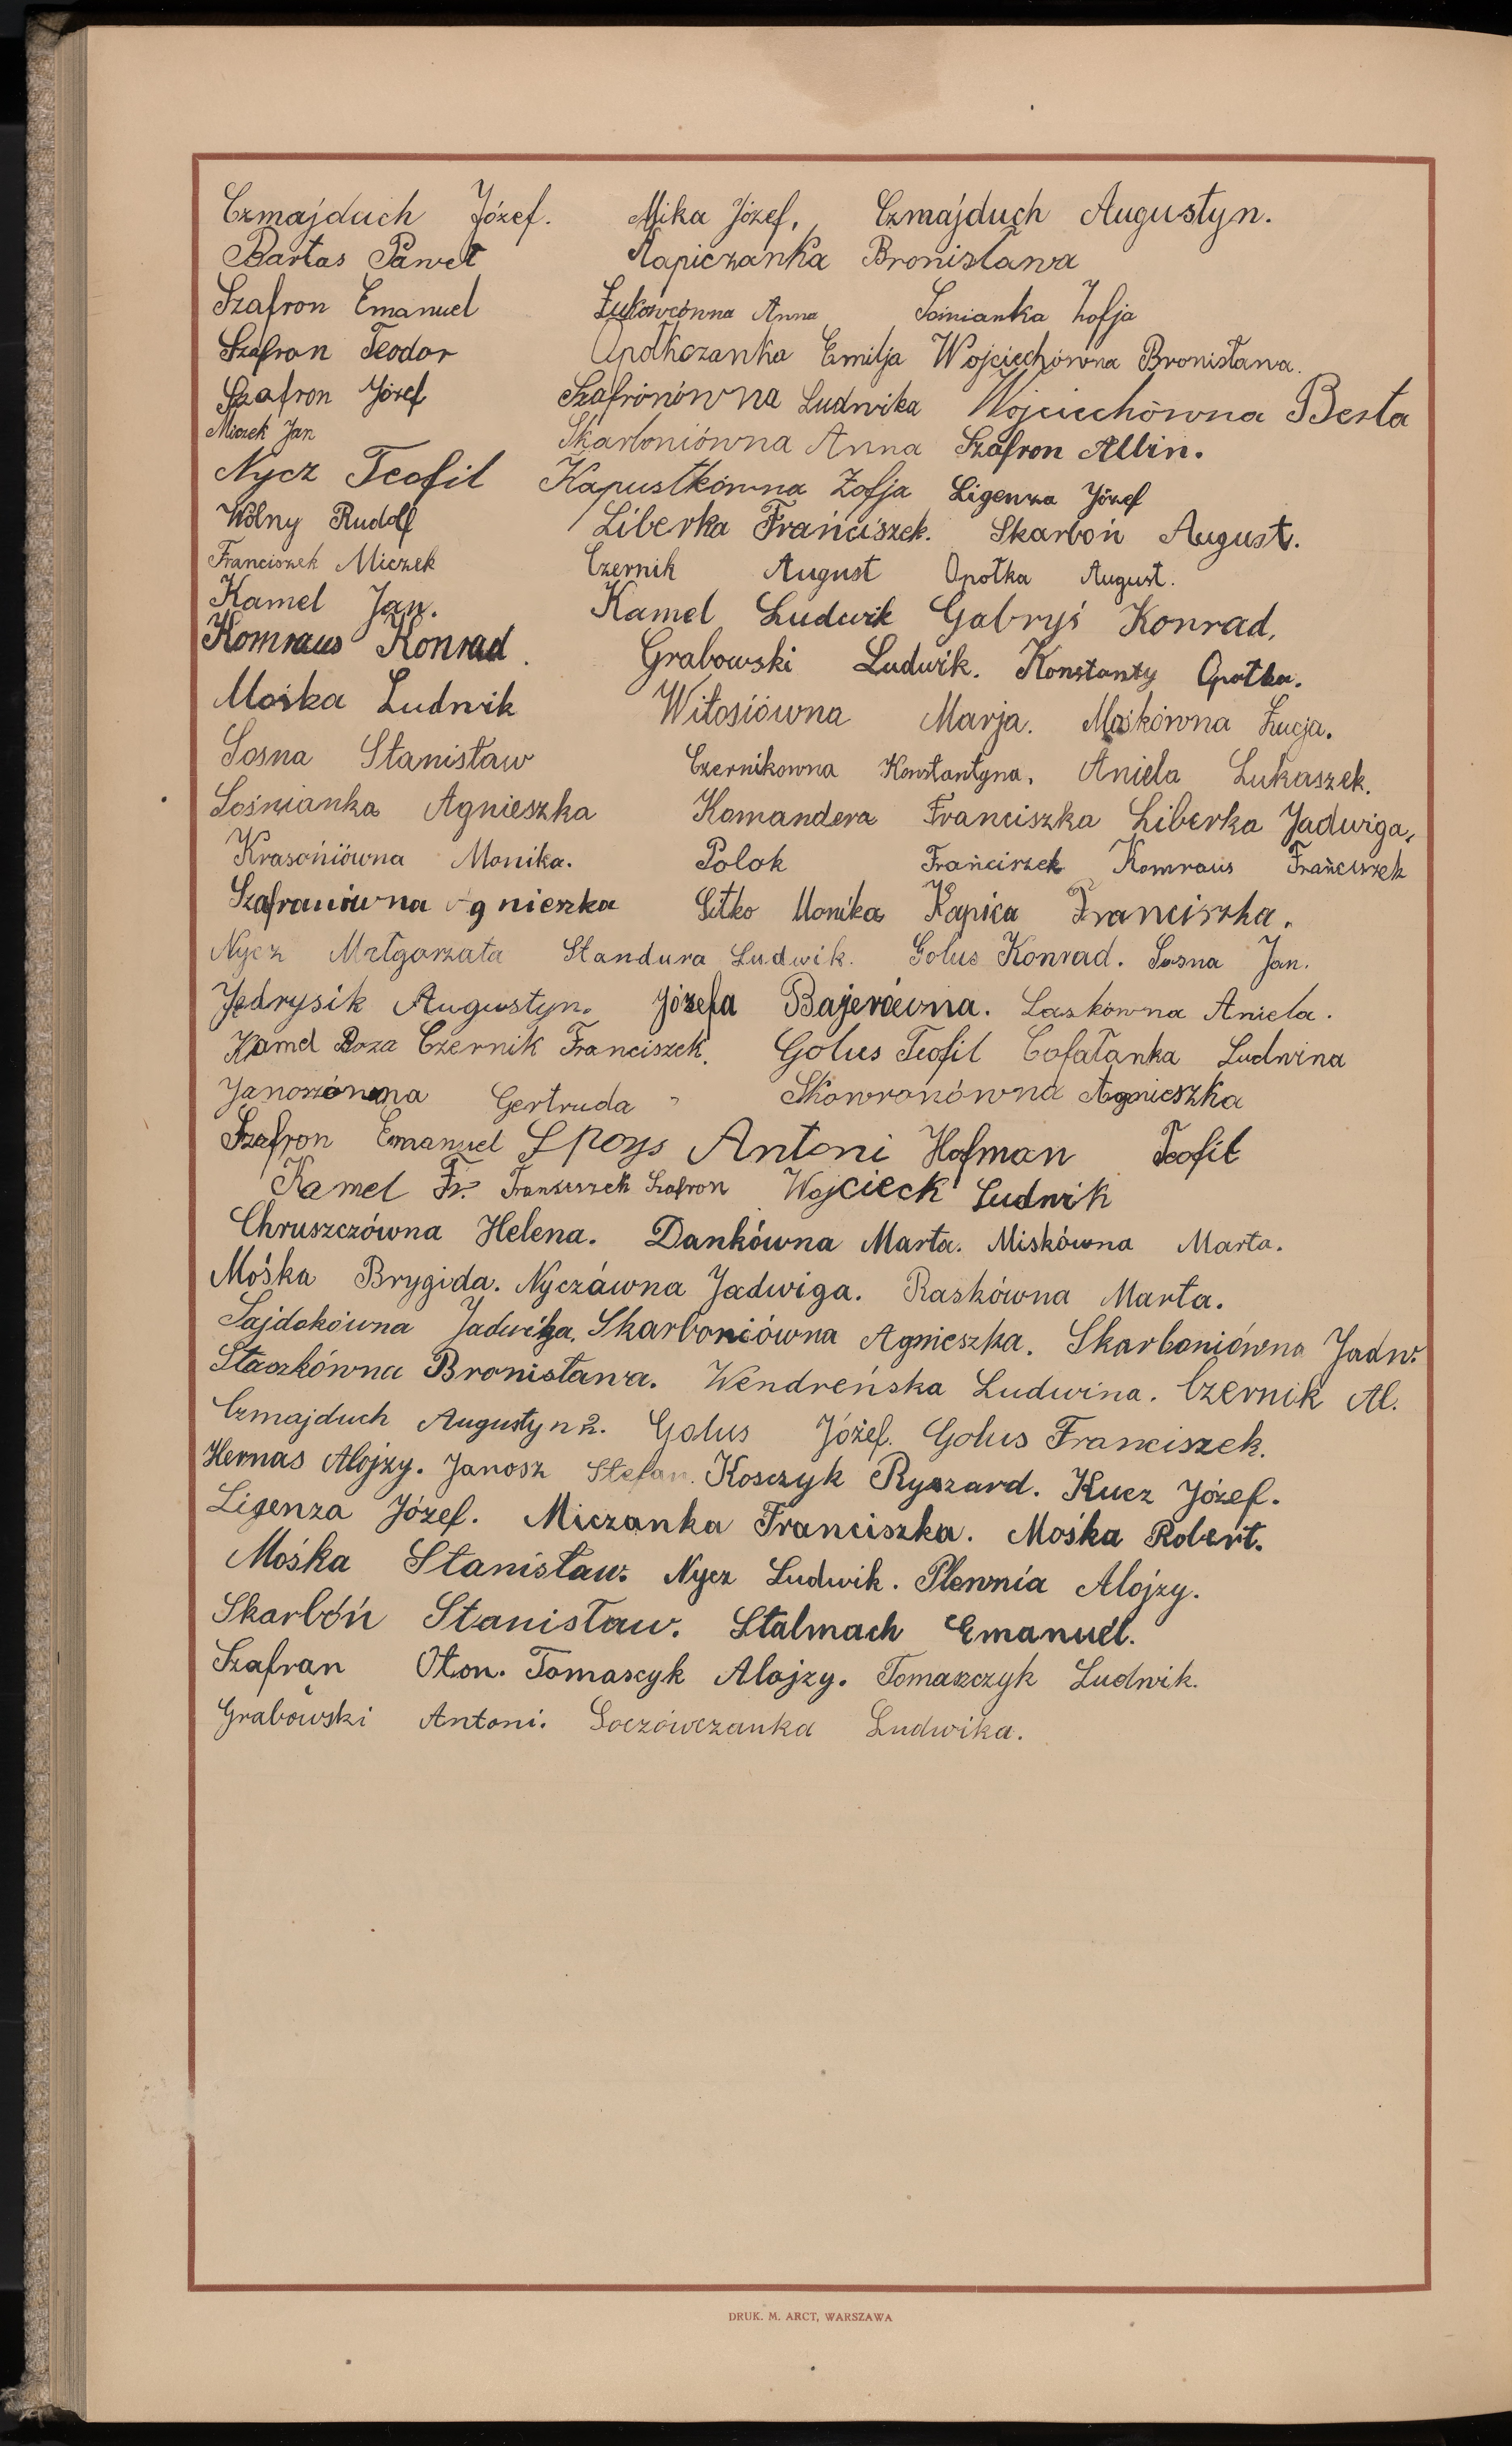 Czmajduch Józef. Mika Józef, Czmajduch Augustyn.
Bartas Paweł Kapiczanka Bronisława
Szafron Emanuel Żukowcówna Anna Sośnianka Zofja
Szafron Teodor Opołkczanka Emilja Wojciechówna Bronisława.
Szafron Józef Szafronówna Ludwika Wojciechówna Berta
Miczek Jan Skarboniówna Anna Szafron Albin.
Nycz Teofil Kapustkówna Zofja Ligenza Józef
Wolny Rudolf Liberka Franciszek. Skarboń August.
Franciszek Miczek Czernik August Opołka August.
Kamel Jan. Kamel Ludwik Gabryś Konrad,
Komraus Konrad. Grabowski Ludwik. Konstanty Opołka.
Mośka Ludwik Witosiówna Marja. Mośkówna Łucja.
Sosna Stanisław Czernikowna Konstantyna, Aniela Lukaszek.
Sośnianka Agnieszka Komandera Franciszka Liberka Jadwiga,
Krasoniówna Monika. Polok Franciszek Komraus Franciszek
Szafronówna Agnieszka Sitko Monika Kapica Franciszka.
Nycz Małgorzata Standura Ludwik. Golus Konrad. Sosna Jan.
Jędrysik Augustyn. Józefa Bajerówna. Laskówna Aniela.
Kamel Roza Czernik Franciszek. Golus Teofil Cofałanka Ludwina
Janoszówna Gertruda Skowronówna Agnieszka
Szafron Emanuel Spoys Antoni Hofman Teofil
Kamel Fr. Franciszek Szafron Wojcieck Ludwik
Chruszczówna Helena. Dankówna Marta. Miskówna Marta.
Mośka Brygida. Nyczówna Jadwiga. Raskówna Marta.
Sajdokówna Jadwiga, Skarboniówna Agnieszka. Skarboniówna Jadw.
Staszkówna Bronisława. Wendreńska Ludwina. Czernik Al.
Czmajduch Augustyn 2. Golus Józef. Golus Franciszek.
Hernas Alojzy. Janosz Stefan. Kosczyk Ryszard. Kucz Józef.
Ligenza Józef. Miczanka Franciszka. Mośka Robert.
Mośka Stanisław. Nycz Ludwik. Plewnia Alojzy.
Skarbóń Stanisław. Stalmach Emanuel.
Szafran Oton. Tomascyk Alojzy. Tomaszczyk Ludwik.
Grabowski Antoni. Soczówczanka Ludwika.
DRUK. M. ARCT, WARSZAWA